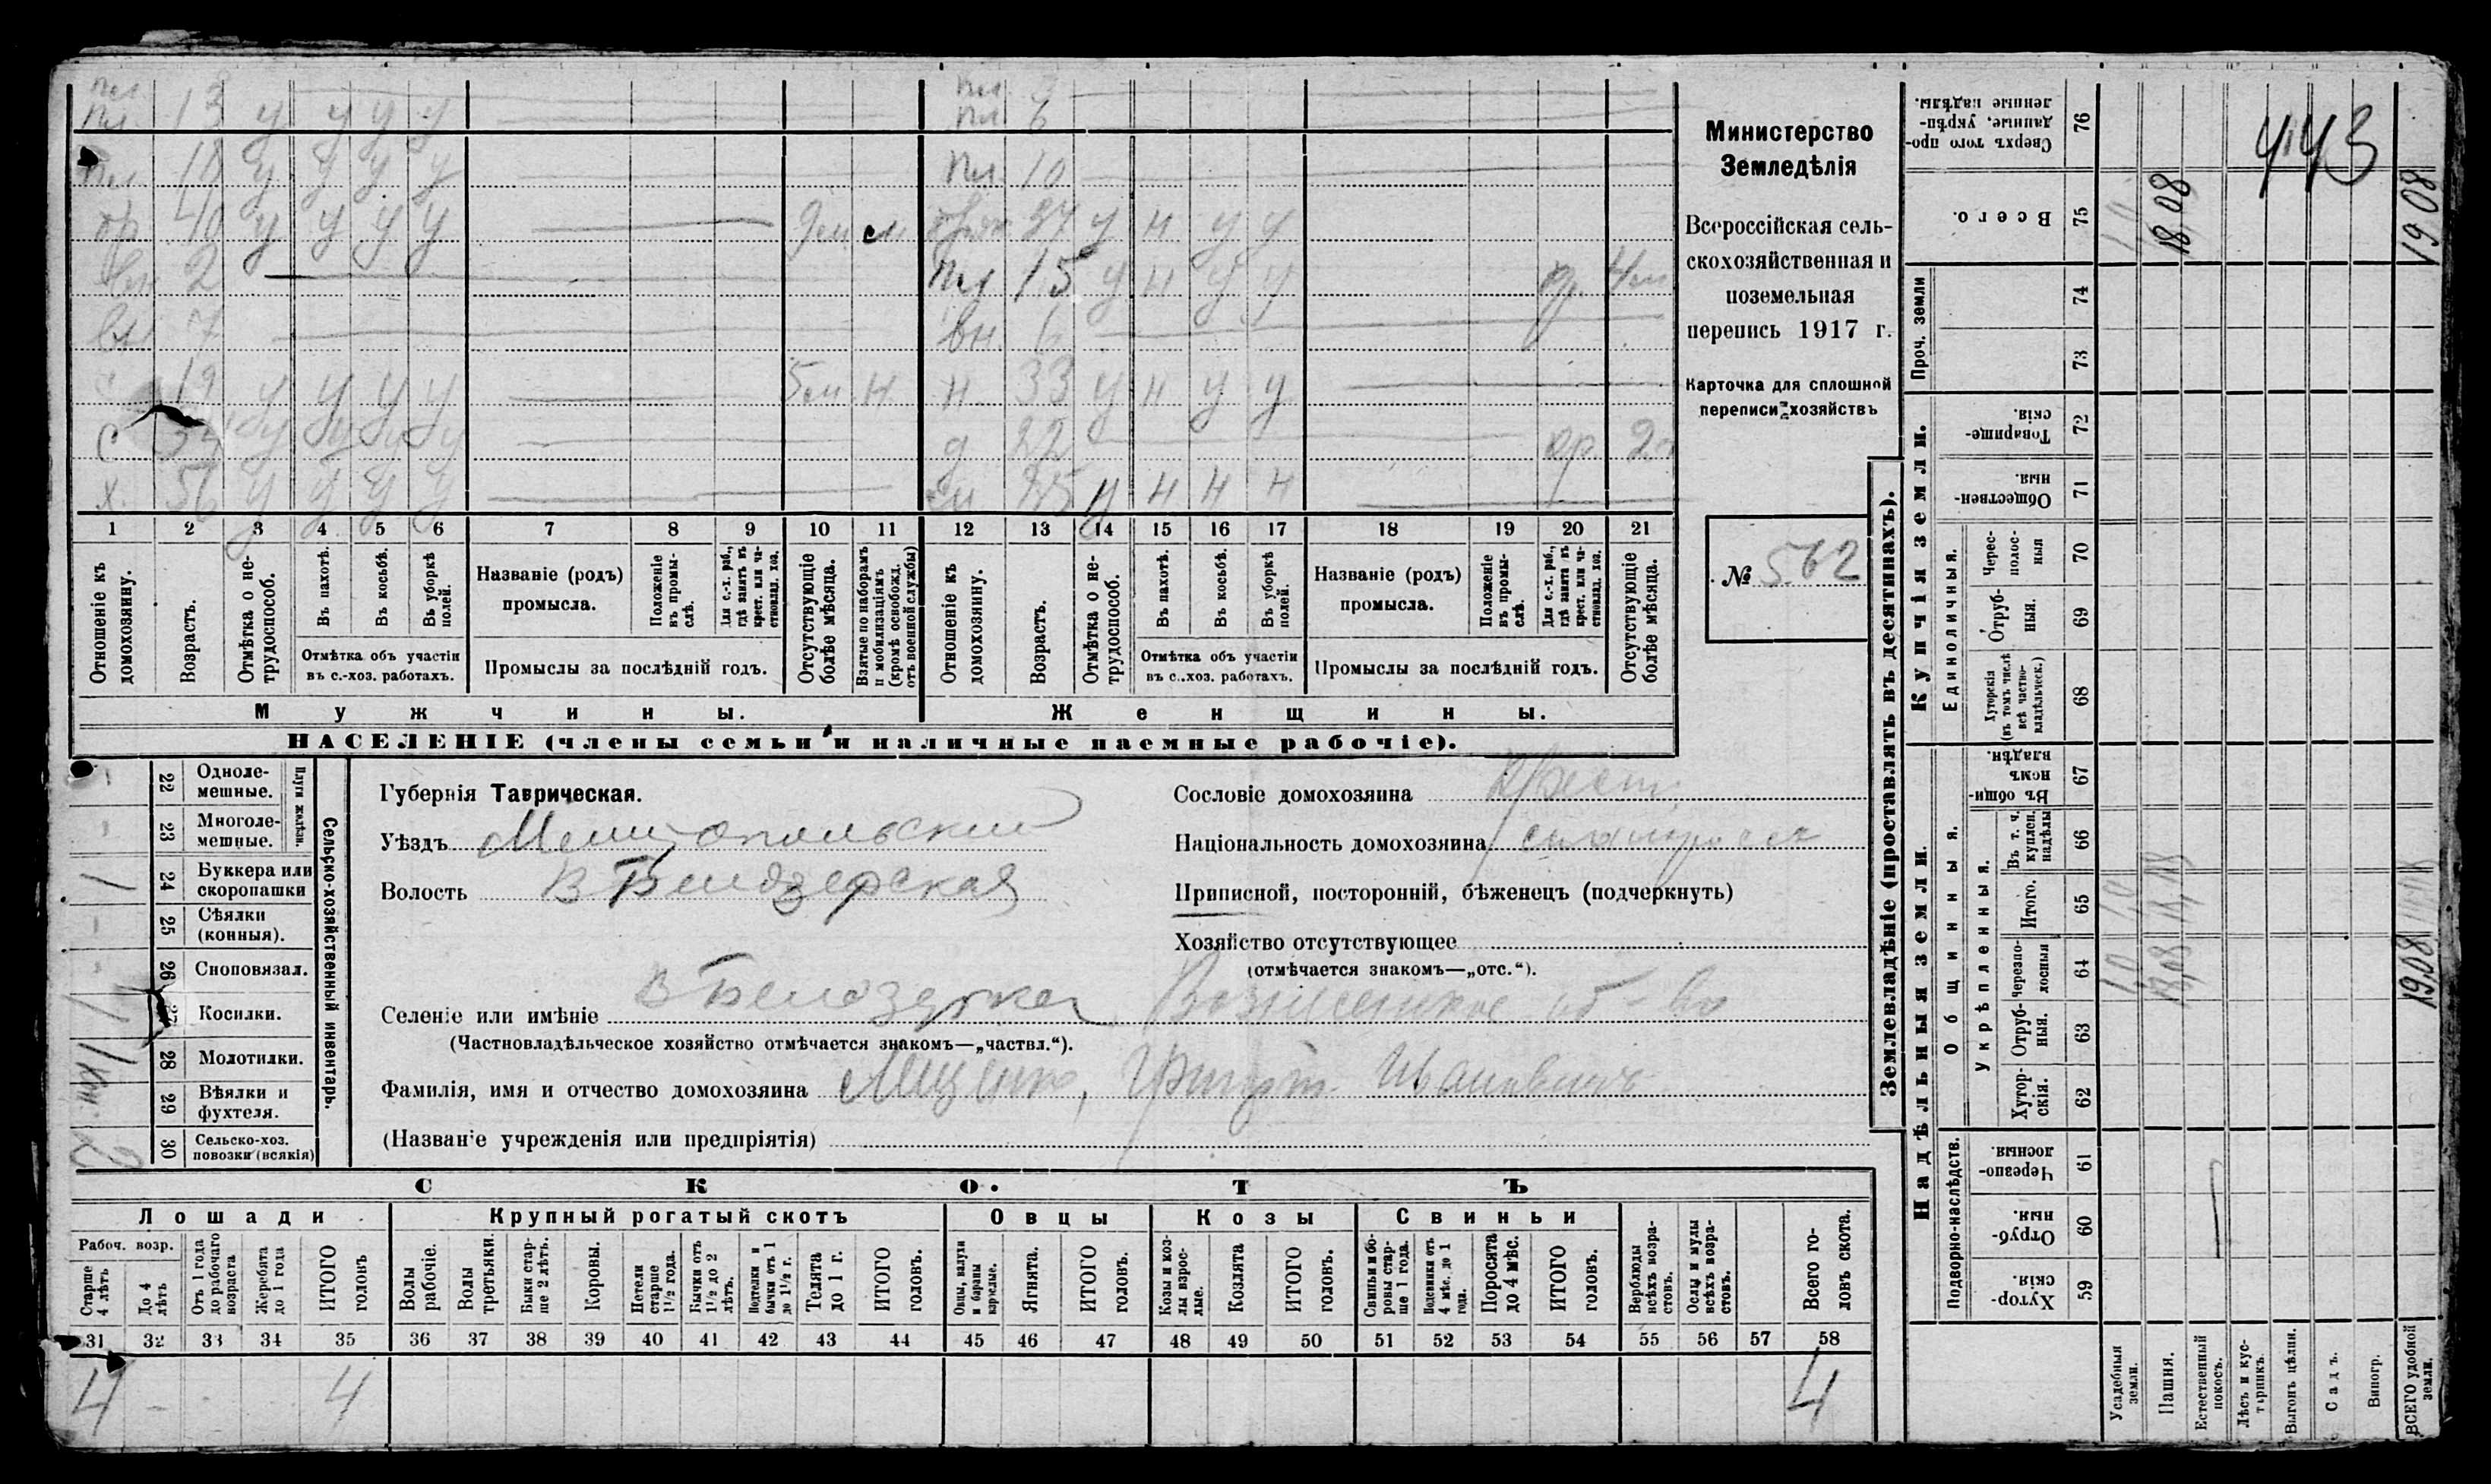 пл. 13 у у у у пл 6
пл. 18 у у у у пл. 10
бр 40 у у у у 9м см 37 у н у у
вн 2 пл 15 у н у у др. 4м
вн 7 вн. 6
с 19 у у у у 5м н н. 33 у н у у
с д 22 др. 2м
х. 56 у у у у у н н н
1 2 3 4 5 6 7 8 9 10 11 12 13 14 15 16 17 18 19 20 21
Отношеніе къ домохозяину.
Возрастъ.
Отмѣтка о нетрудоспособ.
Въ пахотѣ.
Въ косьбѣ.
Въ уборкѣ полей.
Отмѣтка объ участіи въ с.-хоз. работахъ.
Названіе (родъ) промысла.
Положеніе въ промыслѣ.
Для с.-х. раб., гдѣ занятъ въ крест. или частновлад. хоз.
Промыслы за послѣдній годъ.
Отсутствующіе болѣе мѣсяца.
Взятые по наборамъ и мобилизаціямъ (кромѣ освобожд. отъ военной службы)
Отношеніе къ домохозяину.
Возрастъ.
Отмѣтка о нетрудоспособ.
Въ пахотѣ.
Въ косьбѣ.
Въ уборкѣ полей.
Отмѣтка объ участіи въ с.-хоз. работахъ.
Названіе (родъ) промысла.
Положеніе въ промыслѣ.
Для с.-х. раб., гдѣ занята въ крест. или частновлад. хоз.
Промыслы за послѣдній годъ.
Отсутствующіе болѣе мѣсяца.
Мужчины. Женщины.
НАСЕЛЕНІЕ (члены семьи и наличные наемные рабочіе).
Министерство
Земледѣлія
Всероссійская сель-
скохозяйственная и
поземельная
перепись 1917 г.
Карточка для сплошной
переписи хозяйствъ
№ 562
22 Одноле-
мешные.
23 Многоле-
мешные.
Плуги желѣзн.
24 Буккера или
скоропашки
1
25 Сѣялки
(конныя).
26 Сноповязал.
27 Косилки.
1
28 Молотилки.
1 км.
29 Вѣялки и
фухтеля.
30 Сельско-хоз.
повозки (всякія)
2
Сельско-хозяйственный инвентарь.
Губернія Таврическая.
Уѣздъ Мелитопольский
Волость В Белозерская
Селеніе или имѣніе В Белозерка, Вознесенское об-во
(Частновладѣльческое хозяйство отмѣчается знакомъ—„частвл.“).
Фамилія, имя и отчество домохозяина Мищенко, Григорій Иванович
(Названіе учрежденія или предпріятія)
Сословіе домохозяина Крест.
Національность домохозяина
Приписной, посторонній, бѣженецъ (подчеркнуть)
Хозяйство отсутствующее
(отмѣчается знакомъ—„отс.“).
СКОТЪ
Лошади
Рабоч. возр.
Старше 4 лѣтъ
До 4 лѣтъ
Отъ 1 года до рабочаго возраста
Жеребята до 1 года
ИТОГО головъ
Крупный рогатый скотъ
Волы рабочіе.
Волы третьяки.
Быки старше 2 лѣтъ.
Коровы.
Нетели старше 1½ года.
Бычки отъ 1½ до 2 лѣтъ.
Подтелки и бычки отъ 1 до 1½ г.
Телята до 1 г.
ИТОГО головъ.
Овцы
Овцы, валухи и бараны взрослые.
Ягнята.
ИТОГО головъ.
Козы
Козы и козлы взрослые.
Козлята
ИТОГО головъ.
Свиньи
Свиньи и боровы старше 1 года.
Подсвинки отъ 4 мѣс. до 1 года.
Поросята до 4 мѣс.
ИТОГО головъ.
Верблюды всѣхъ возрастовъ.
Ослы и мулы всѣхъ возрастовъ.
Всего головъ скота.
31 32 33 34 35 36 37 38 39 40 41 42 43 44 45 46 47 48 49 50 51 52 53 54 55 56 57 58
4 - 4 4
Землевладѣніе (проставлять въ десятинахъ).
Купчія земли.
Сверхъ того проданные, укрѣпленные надѣлы. 76
443
Всего. 75
18,08 19 08
Проч. земли
74
73
Товарищескія. 72
Общественныя. 71
Единоличныя.
Черес-полосныя 70
Отрубныя. 69
Хуторскія (въ томъ числѣ всѣ частновладѣльческ.) 68
Надѣльныя земли.
Общинныя.
Въ общинномъ владѣн. 67
Укрѣпленныя.
Въ т. ч. куплен. надѣлы 66
Итого. 65
Черезполосныя 64
18,08 19,08
Отрубныя. 63
Хуторскія. 62
Подворно-наслѣдств.
Черезполосныя. 61
Отрубныя. 60
Хуторскія. 59
Усадебныя земли.
Пашня.
Естественный покосъ.
Лѣсъ и кустарникъ.
Выгонъ цѣлин.
Садъ.
Виногр.
ВСЕГО удобной земли.